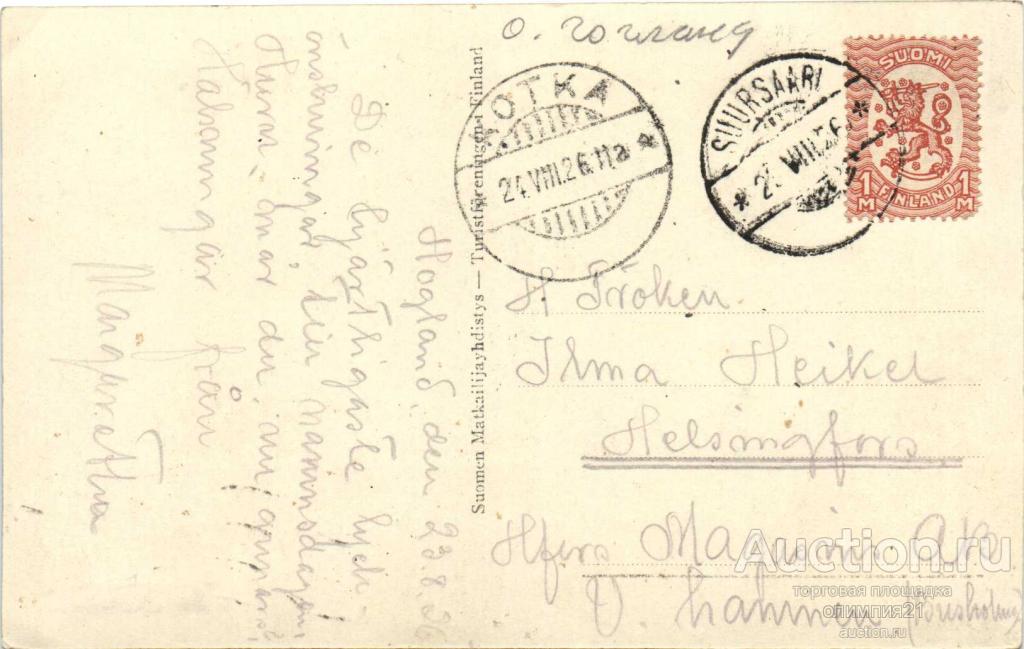 о. гогланд
KOTKA
24.VIII.26.11a
SUURSAARI
VIII.26
SUOMI
1 M FINLAND 1 M
Suomen Matkailijayhdistys — Turistföreningen i Finland
Hogland den 23.8.26
De hjärtligaste lyck-
önskningar, till namnsdagen
Huru mår du nu,
Hälsningar från
Margaretha
H. Fröken
Ilma Heikel
Helsingfors
Hfors Magasins Ab
V. hamnen
Auction.ru
торговая площадка
олимпия21
auction.ru